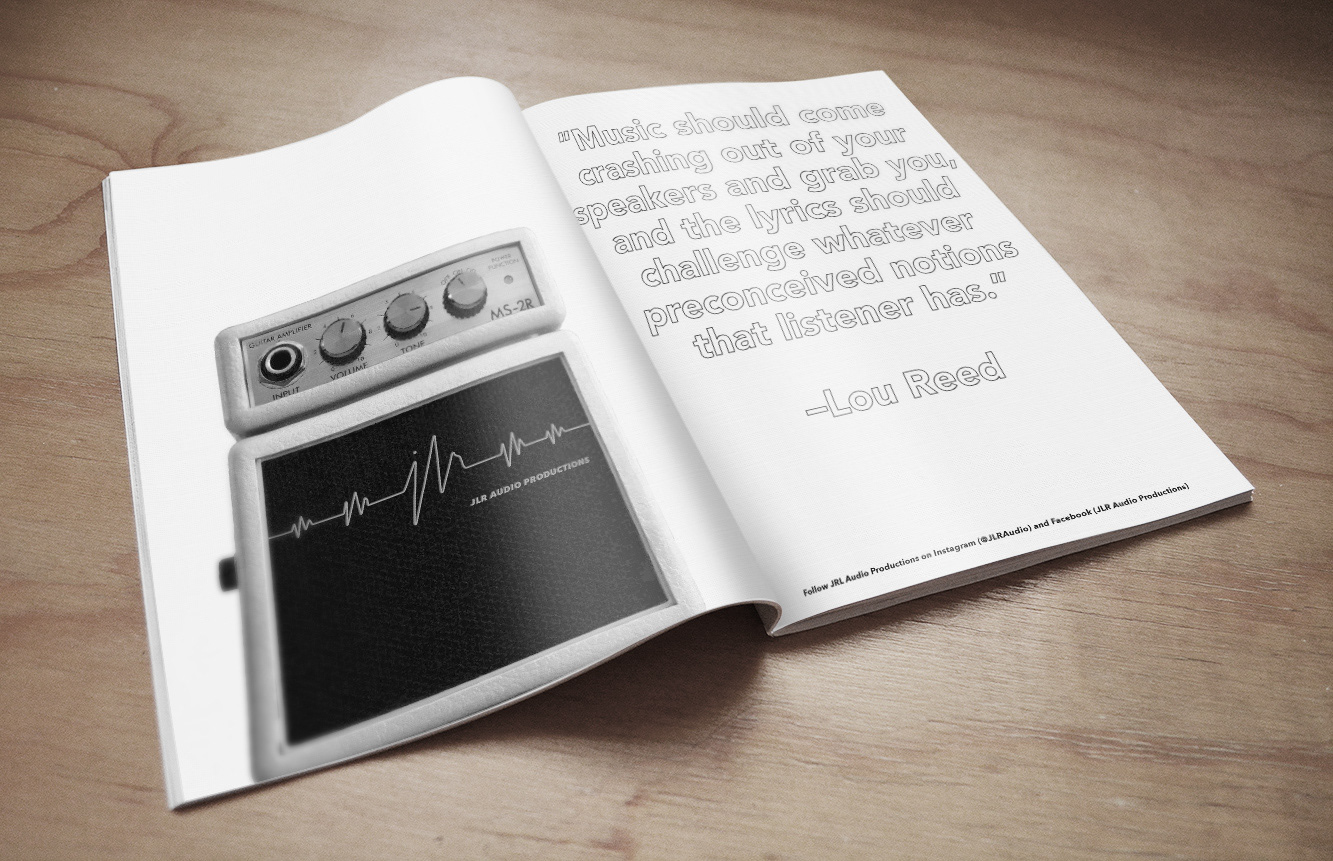 GUITAR AMPLIFIER
INPUT
VOLUME
TONE
POWER
FUNCTION
MS-2R
jlr
JLR AUDIO PRODUCTIONS
"Music should come
crashing out of your
speakers and grab you,
and the lyrics should
challenge whatever
preconceived notions
that listener has."
–Lou Reed
Follow JRL Audio Productions on Instagram (@JLRAudio) and Facebook (JLR Audio Productions)